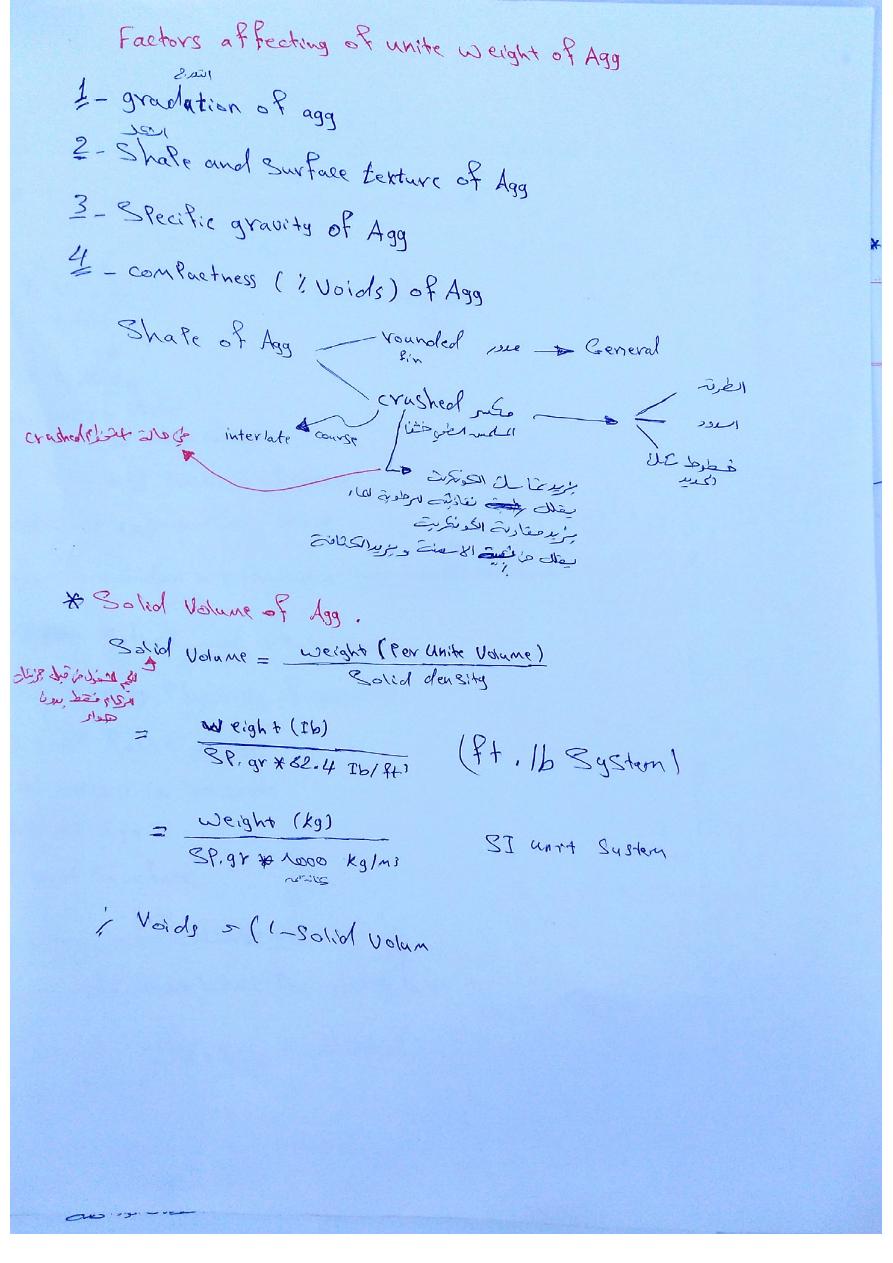 Factors affecting of unite weight of Agg
التدرج
1- gradation of agg
الشكل
2- Shape and surface texture of Agg
3- Specific gravity of Agg
4- compactness (% Voids) of Agg
Shape of Agg
rounded مدور → General
fin
crushed مكسر
الطرق
السدود
خطوط سكك
الحديد
course
interlate
في حالة استخدام crushed
يزيد تماسك الكونكريت
يقلل نفاذيته للرطوبة
يزيد مقاومة الكونكريت
يقلل من كمية الاسمنت ويزيد الكثافة
* Solid Volume of Agg.
Solid Volume = weight (Per Unite Volume) / Solid density
الحجم المشغول من قبل جزيئات
الركام فقط بدون
هواء
= weight (Ib) / SP. gr * 62.4 Ib/ft³ (ft . lb System)
= weight (kg) / SP. gr * 1000 kg/m3 SI unit System
% Voids = (1-Solid Volum